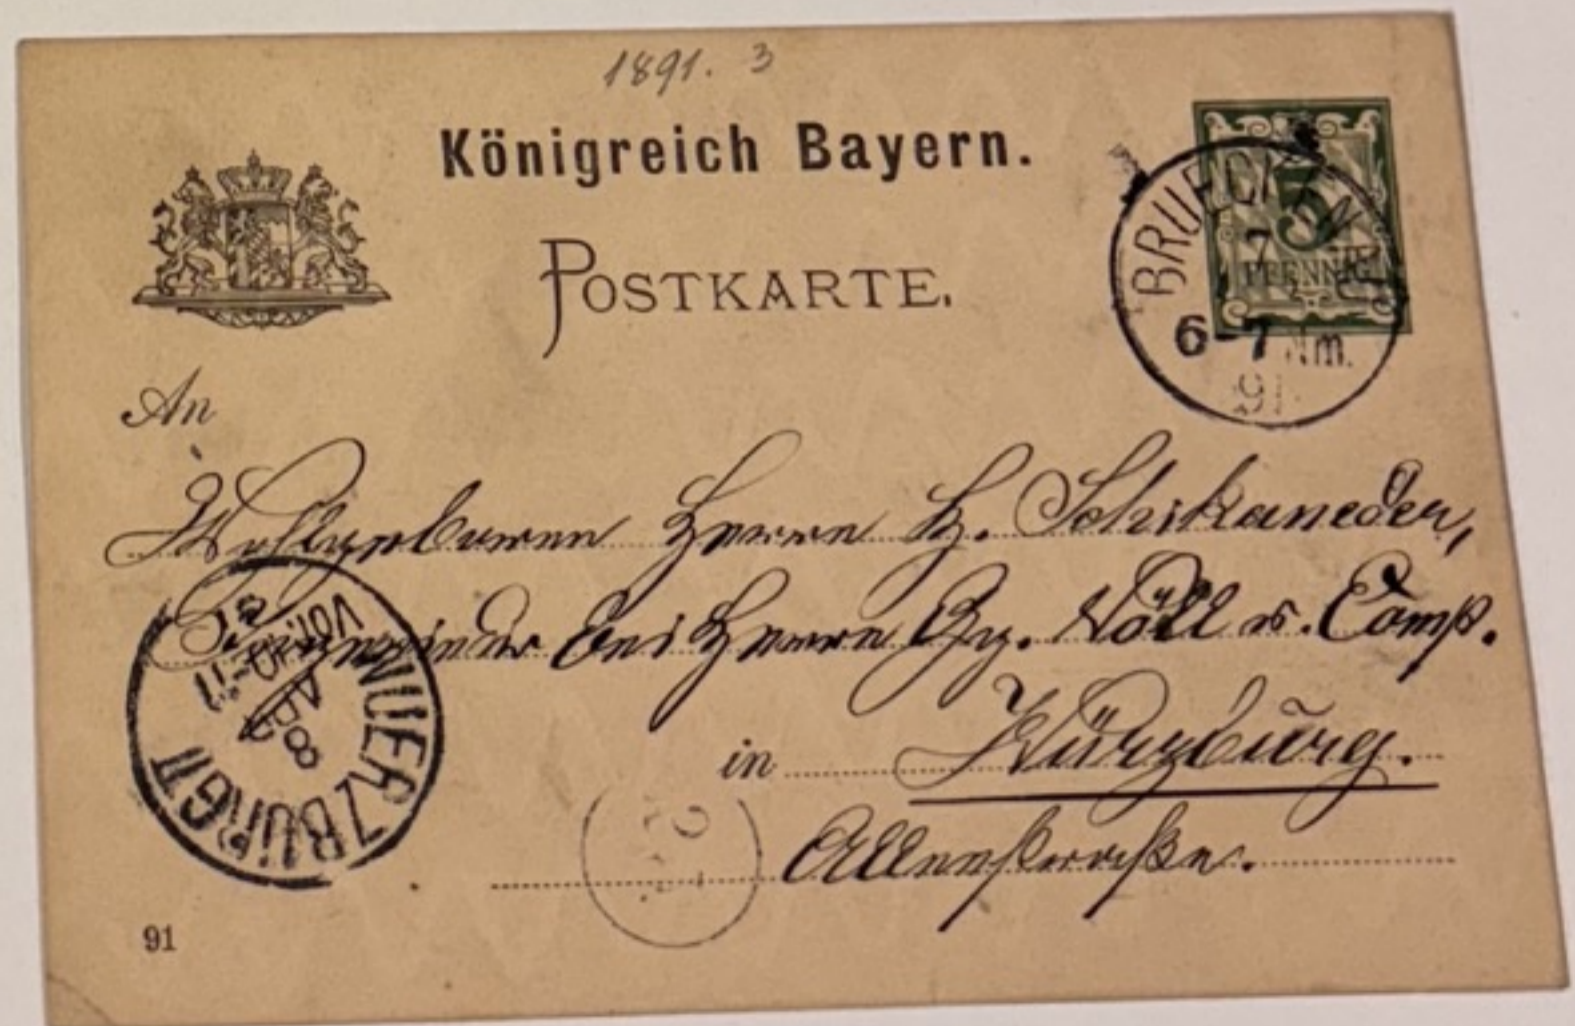 1891. 3
Königreich Bayern.
POSTKARTE.
BRUECKENAU
7
5
PFENNIG
6-7 Nm.
91.
An
Wohlgeboren Herrn H. Schikaneder,
bei Herrn Gg. Nöll u. Comp.
in Würzburg.
Alleestraße.
WUERZBURG II
8 APR
VOR. 10-11
91
91